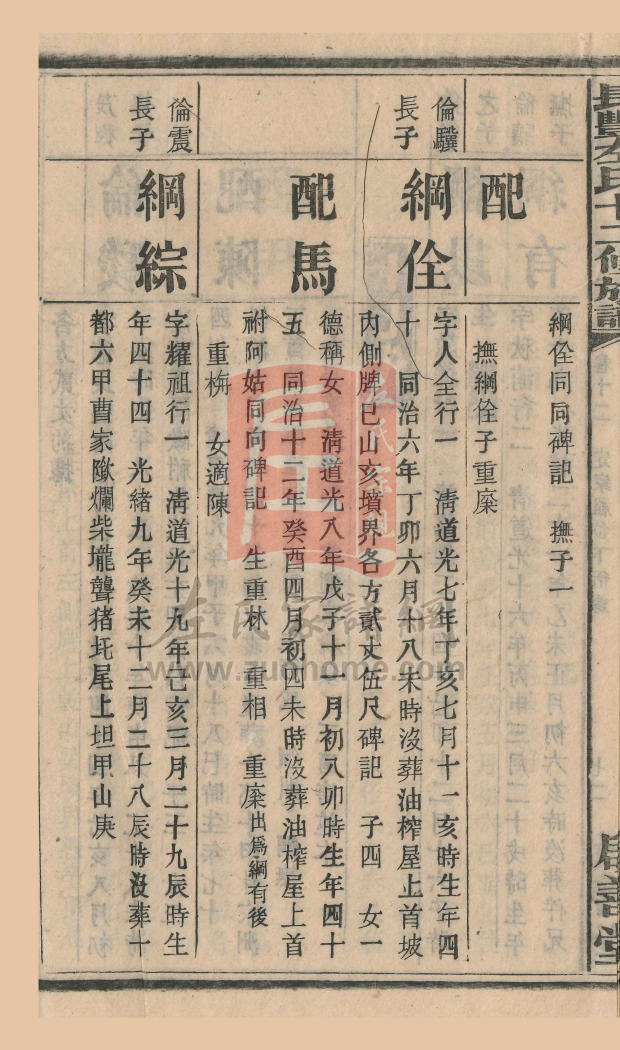 長豐左氏十二修族譜
啟善堂
配
綱佺同同碑記 撫子一
撫綱佺子重㮶
倫驥
長子
綱佺
字人全行一 清道光七年丁亥七月十一亥時生年四
十 同治六年丁卯六月十八未時沒葬油榨屋上首坡
內側牌巳山亥墳界各方貳丈伍尺碑記 子四 女一
配馬
德稱女 清道光八年戊子十一月初八卯時生年四十
五 同治十二年癸酉四月初四未時沒葬油榨屋上首
祔阿姑同向碑記 生重林 重相 重㮶出爲綱有後
重梅 女適陳
倫震
長子
綱綜
字耀祖行一 清道光十九年己亥三月二十九辰時生
年四十四 光緒九年癸未十二月二十八辰時沒葬十
都六甲曹家爛柴壠聾猪尾上坦甲山庚
左氏家譜網
www.zuohome.com